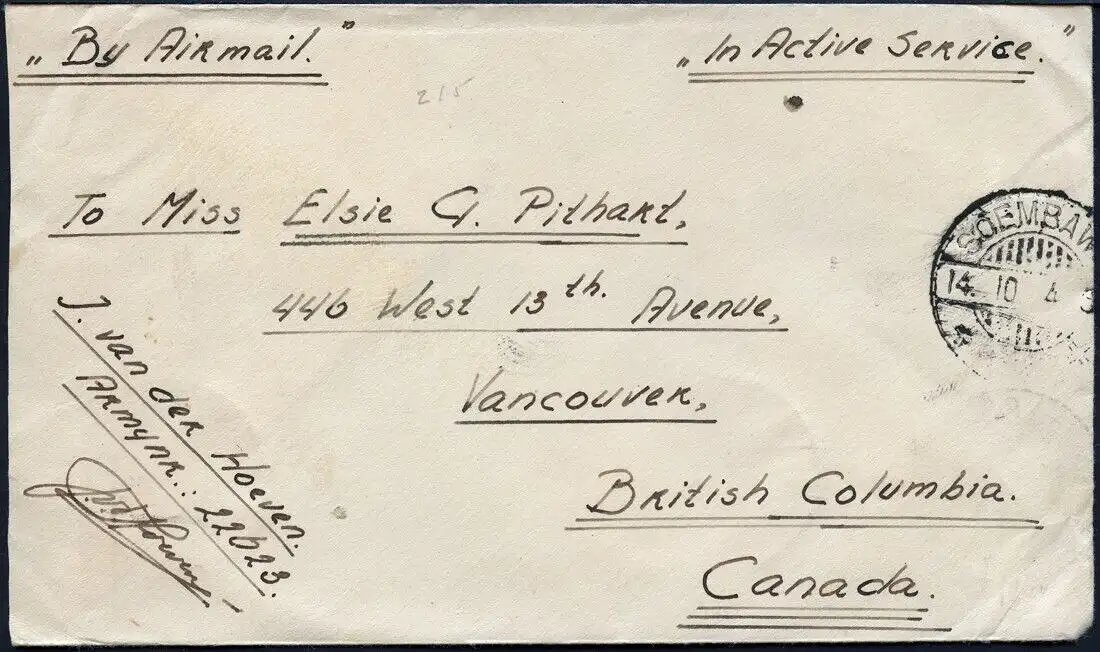 „By Airmail.”
„In Active Service.”
215
To Miss Elsie G. Pithart,
446 West 13th. Avenue,
Vancouver,
British Columbia.
Canada.
J. van der Hoeven.
Armynr.: 22623.
SOEMBAW
14. 10 4